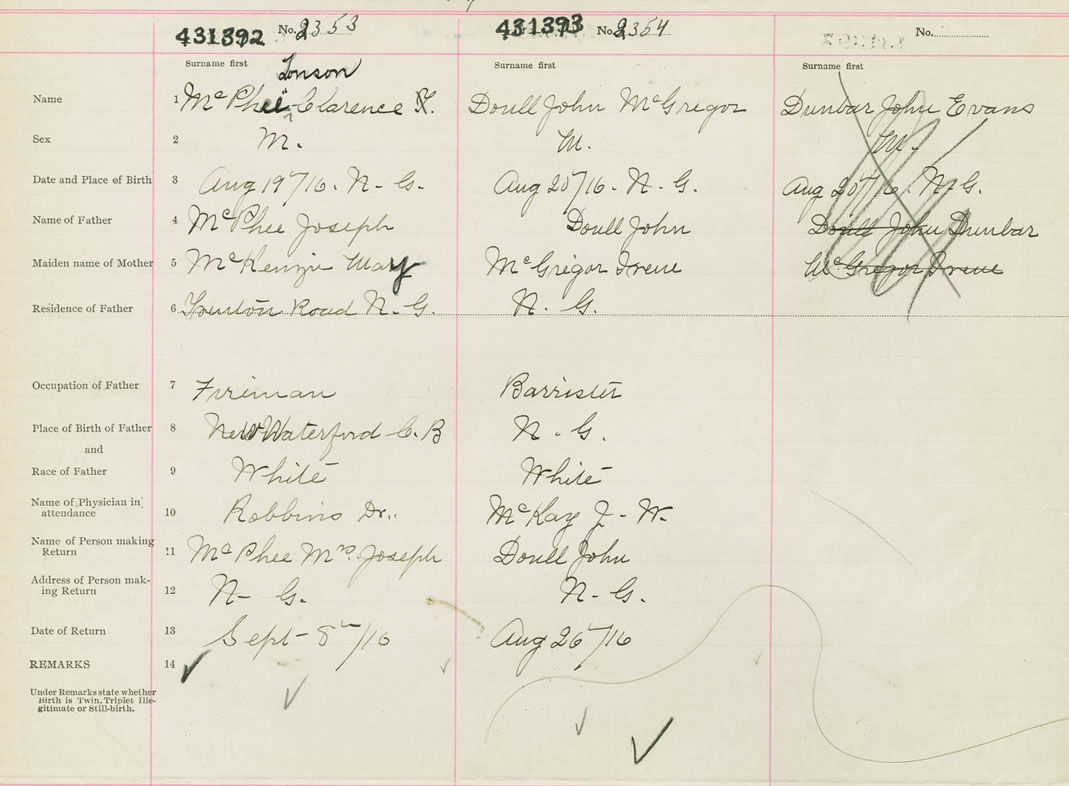 431392 No. 2353
431393 No. 2354
No.
Surname first
Surname first
Surname first
Tonson
Name 1 McPhee Clarence
Doull John McGregor
Dunbar John Evans
Sex 2 M.
M.
M.
Date and Place of Birth 3 Aug 19th/16. N-G.
Aug 20/16. N-G.
Aug 20th/16. N-G.
Name of Father 4 McPhee Joseph
Doull John
Doull John Dunbar
Maiden name of Mother 5 McKenzie May
McGregor Irene
McGregor Irene
Residence of Father 6 Trenton Road N-G.
N. G.
Occupation of Father 7 Fireman
Barrister
Place of Birth of Father 8 New Waterford C.B
N-G.
and
Race of Father 9 White
White
Name of Physician in
attendance 10 Robbins Dr.
McKay J-W.
Name of Person making
Return 11 McPhee Mrs. Joseph
Doull John
Address of Person mak-
ing Return 12 N- G.
N-G.
Date of Return 13 Sept-8th/16
Aug 26th/16
REMARKS 14
Under Remarks state whether
Birth is Twin, Triplet Ille-
gitimate or Still-birth.